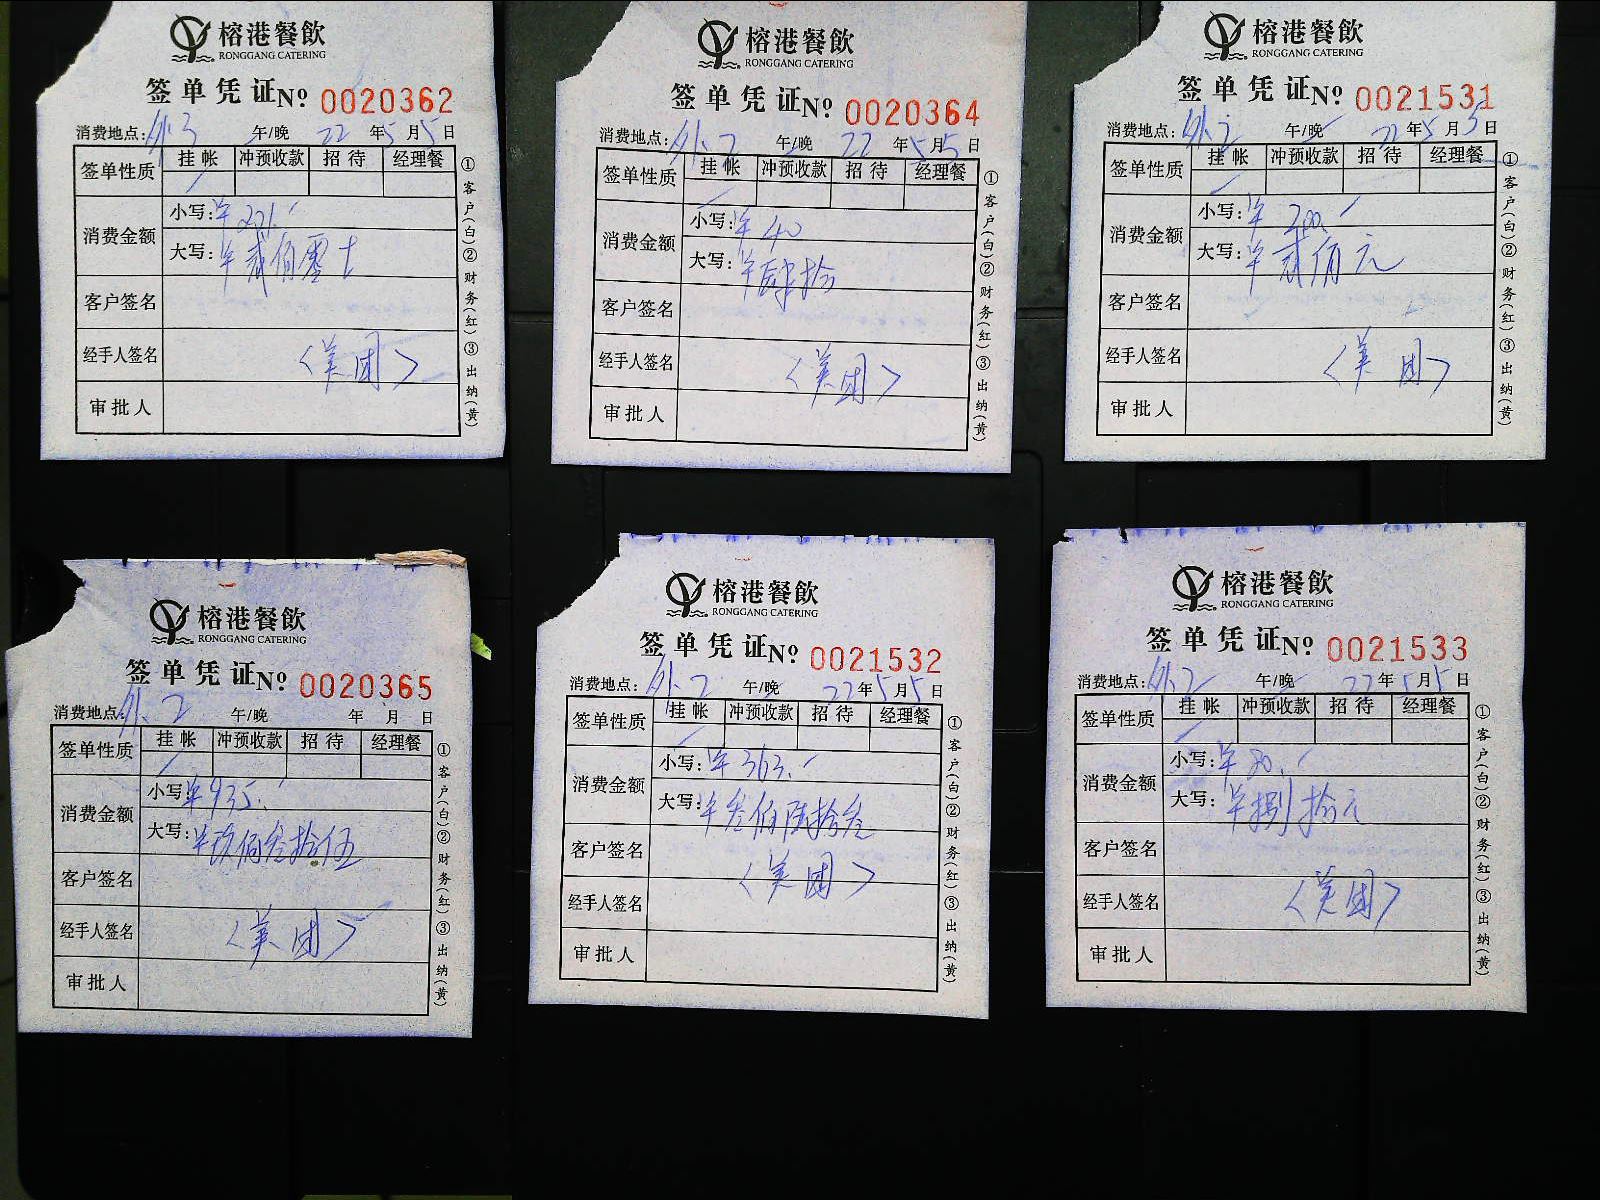 榕港餐飲
RONGGANG CATERING
签单凭证 No 0020362
消费地点: 外3 午/晚 22年5月5日
签单性质 挂帐 冲预收款 招待 经理餐
消费金额 小写:
大写: 半贰佰零
客户签名
经手人签名 〈美团〉
审批人
①客户(白)②财务(红)③出纳(黄)
榕港餐飲
RONGGANG CATERING
签单凭证 No 0020364
消费地点: 外.2 午/晚 22年5月5日
签单性质 挂帐 冲预收款 招待 经理餐
消费金额 小写: 半40
大写: 半肆拾
客户签名
经手人签名 〈美团〉
审批人
①客户(白)②财务(红)③出纳(黄)
榕港餐飲
RONGGANG CATERING
签单凭证 No 0021531
消费地点: 外.2 午/晚 22年5月5日
签单性质 挂帐 冲预收款 招待 经理餐
消费金额 小写: 半200.
大写: 半贰佰元
客户签名
经手人签名 〈美团〉
审批人
①客户(白)②财务(红)③出纳(黄)
榕港餐飲
RONGGANG CATERING
签单凭证 No 0020365
消费地点: 外.2 午/晚 年 月 日
签单性质 挂帐 冲预收款 招待 经理餐
消费金额 小写: 半935.
大写: 半玖佰叁拾伍
客户签名
经手人签名 〈美团〉
审批人
①客户(白)②财务(红)③出纳(黄)
榕港餐飲
RONGGANG CATERING
签单凭证 No 0021532
消费地点: 外.2 午/晚 22年5月5日
签单性质 挂帐 冲预收款 招待 经理餐
消费金额 小写: 半363.
大写: 半叁佰陆拾叁
客户签名 〈美团〉
经手人签名
审批人
①客户(白)②财务(红)③出纳(黄)
榕港餐飲
RONGGANG CATERING
签单凭证 No 0021533
消费地点: 外.2 午/晚 22年5月5日
签单性质 挂帐 冲预收款 招待 经理餐
消费金额 小写: 半80.
大写: 半捌拾元
客户签名
经手人签名 〈美团〉
审批人
①客户(白)②财务(红)③出纳(黄)